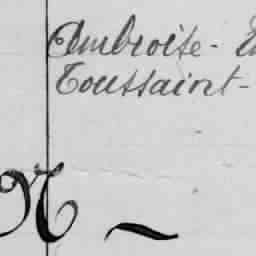 Ambroise -
Toussaint -
N ~